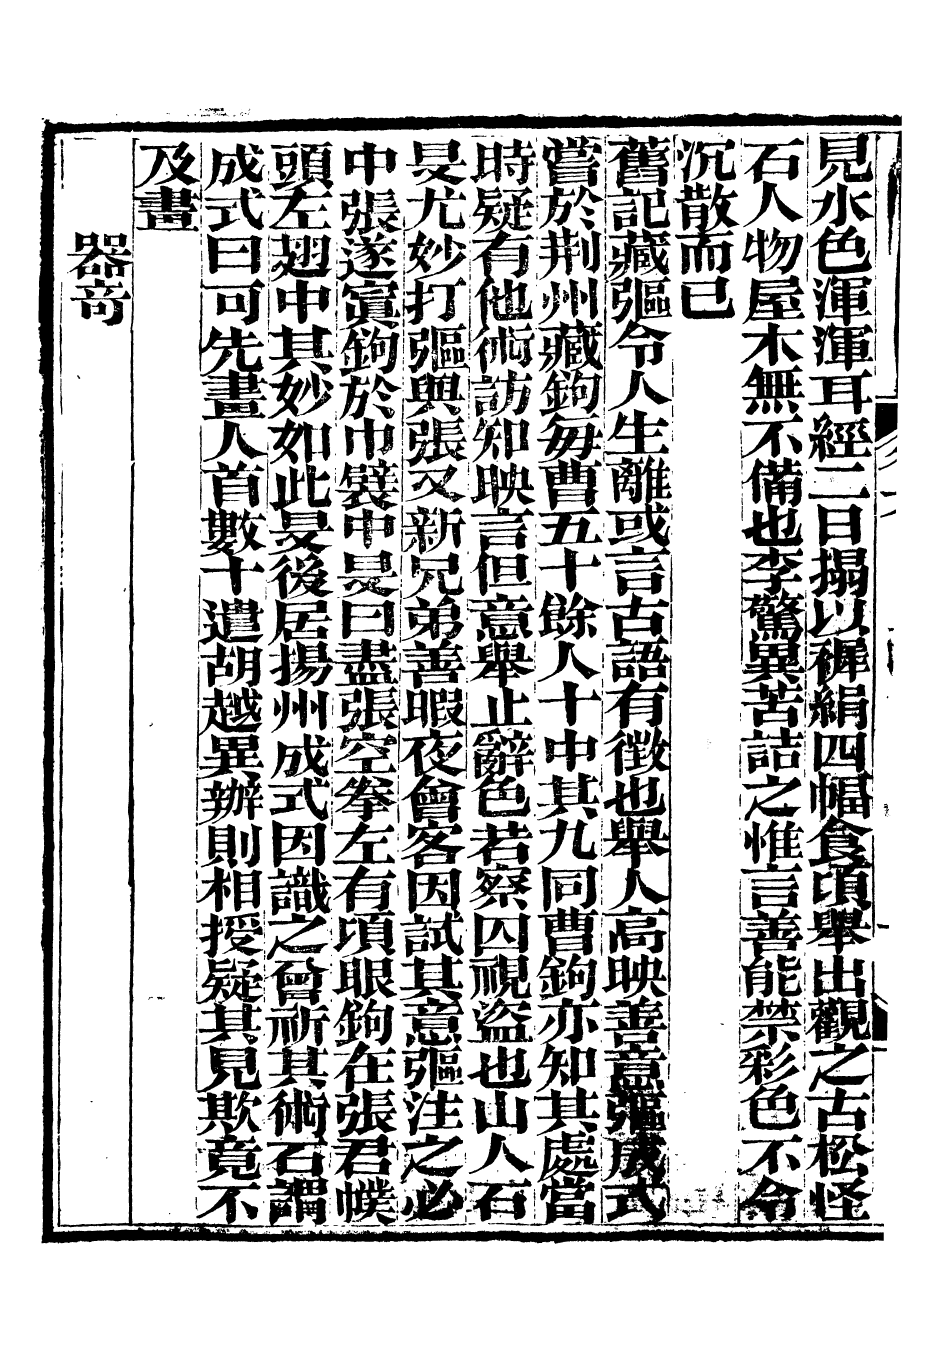 見水色渾渾耳經二日搨以穉絹四幅食頃舉出觀之古松怪
石人物屋木無不備也李驚異苦詰之惟言善能禁彩色不令
沉散而已
舊記藏彄令人生離或言古語有徵也舉人高映善意彄成式
嘗於荆州藏鉤每曹五十餘人十中其九同曹鉤亦知其處當
時疑有他術訪知映言但意舉止辭色若察囚視盜也山人石
旻尤妙打彄與張又新兄弟善暇夜會客因試其意彄注之必
中張遂寘鉤於巾襞中旻曰盡張空拳左有頃眼鉤在張君幞
頭左翅中其妙如此旻後居揚州成式因識之曾祈其術石謂
成式曰可先畫人首數十遣胡越異辦則相授疑其見欺竟不
及畫
器竒